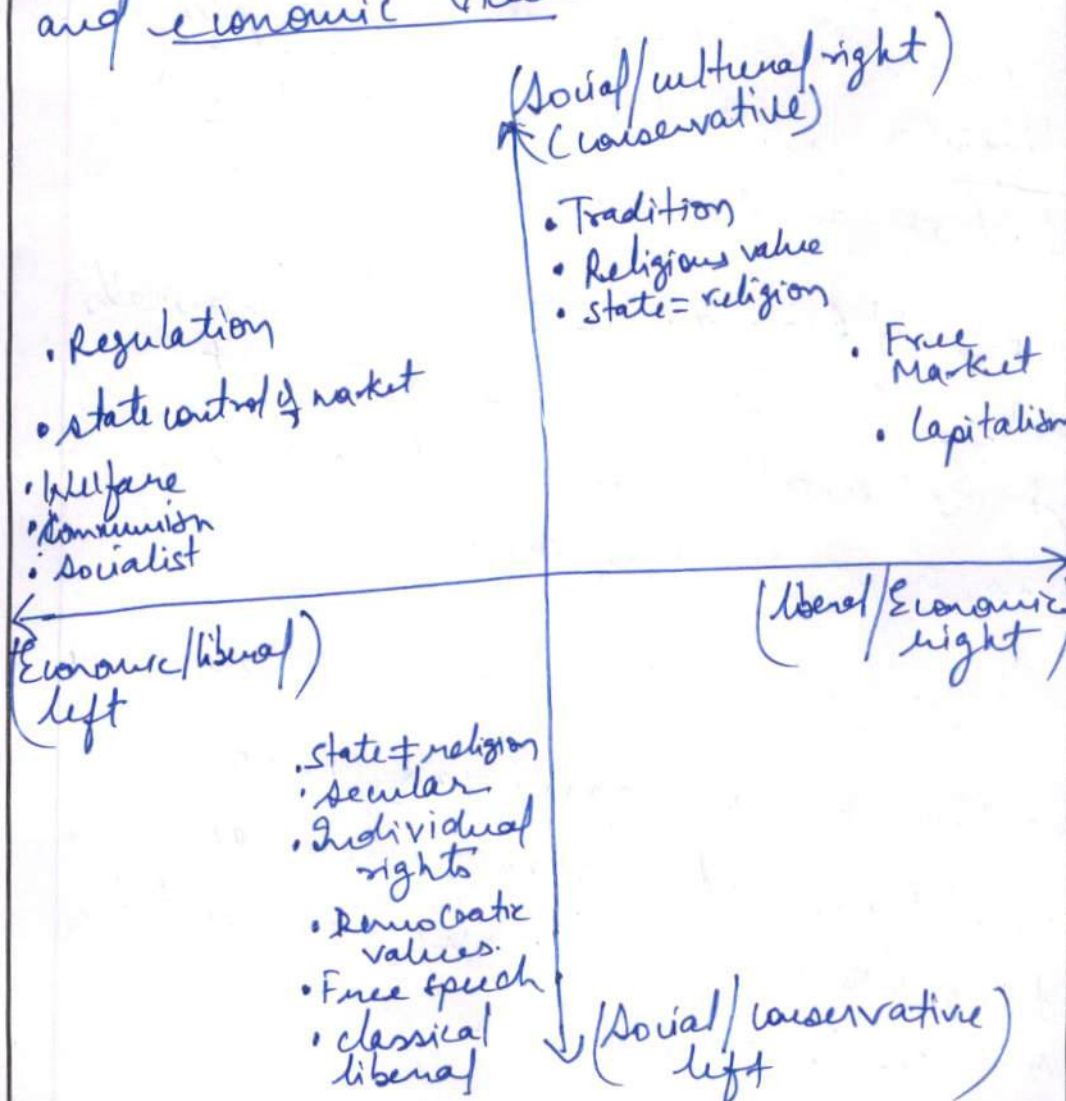 and economic
(Social/cultural right)
(conservative)
• Tradition
• Religious value
• state = religion
• Regulation
• state control of market
• Welfare
• Communism
• socialist
• Free
Market
• Capitalism
(liberal/Economic
right)
(Economic/liberal)
left
• state ≠ religion
• secular
• Individual
rights
• Democratic
values.
• Free speech
• classical
liberal
(Social/conservative
left)